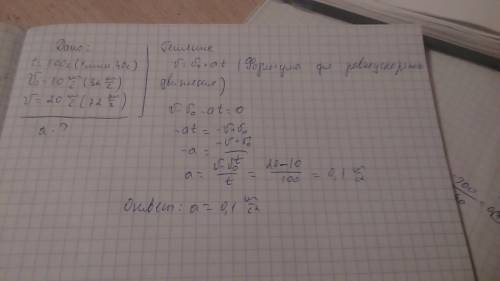 Дано:
t = 100с (1 мин 40с)
v₀ = 10 м/с (36 км/ч)
v = 20 м/с (72 км/ч)
a - ?
Решение
v = v₀ + at (Формула для равноускоренного
движения)
v - v₀ - at = 0
-at = -v + v₀
-a = (-v + v₀)/t
a = (v - v₀)/t = (20-10)/100 = 0,1 м/с²
Ответ: a = 0,1 м/с²